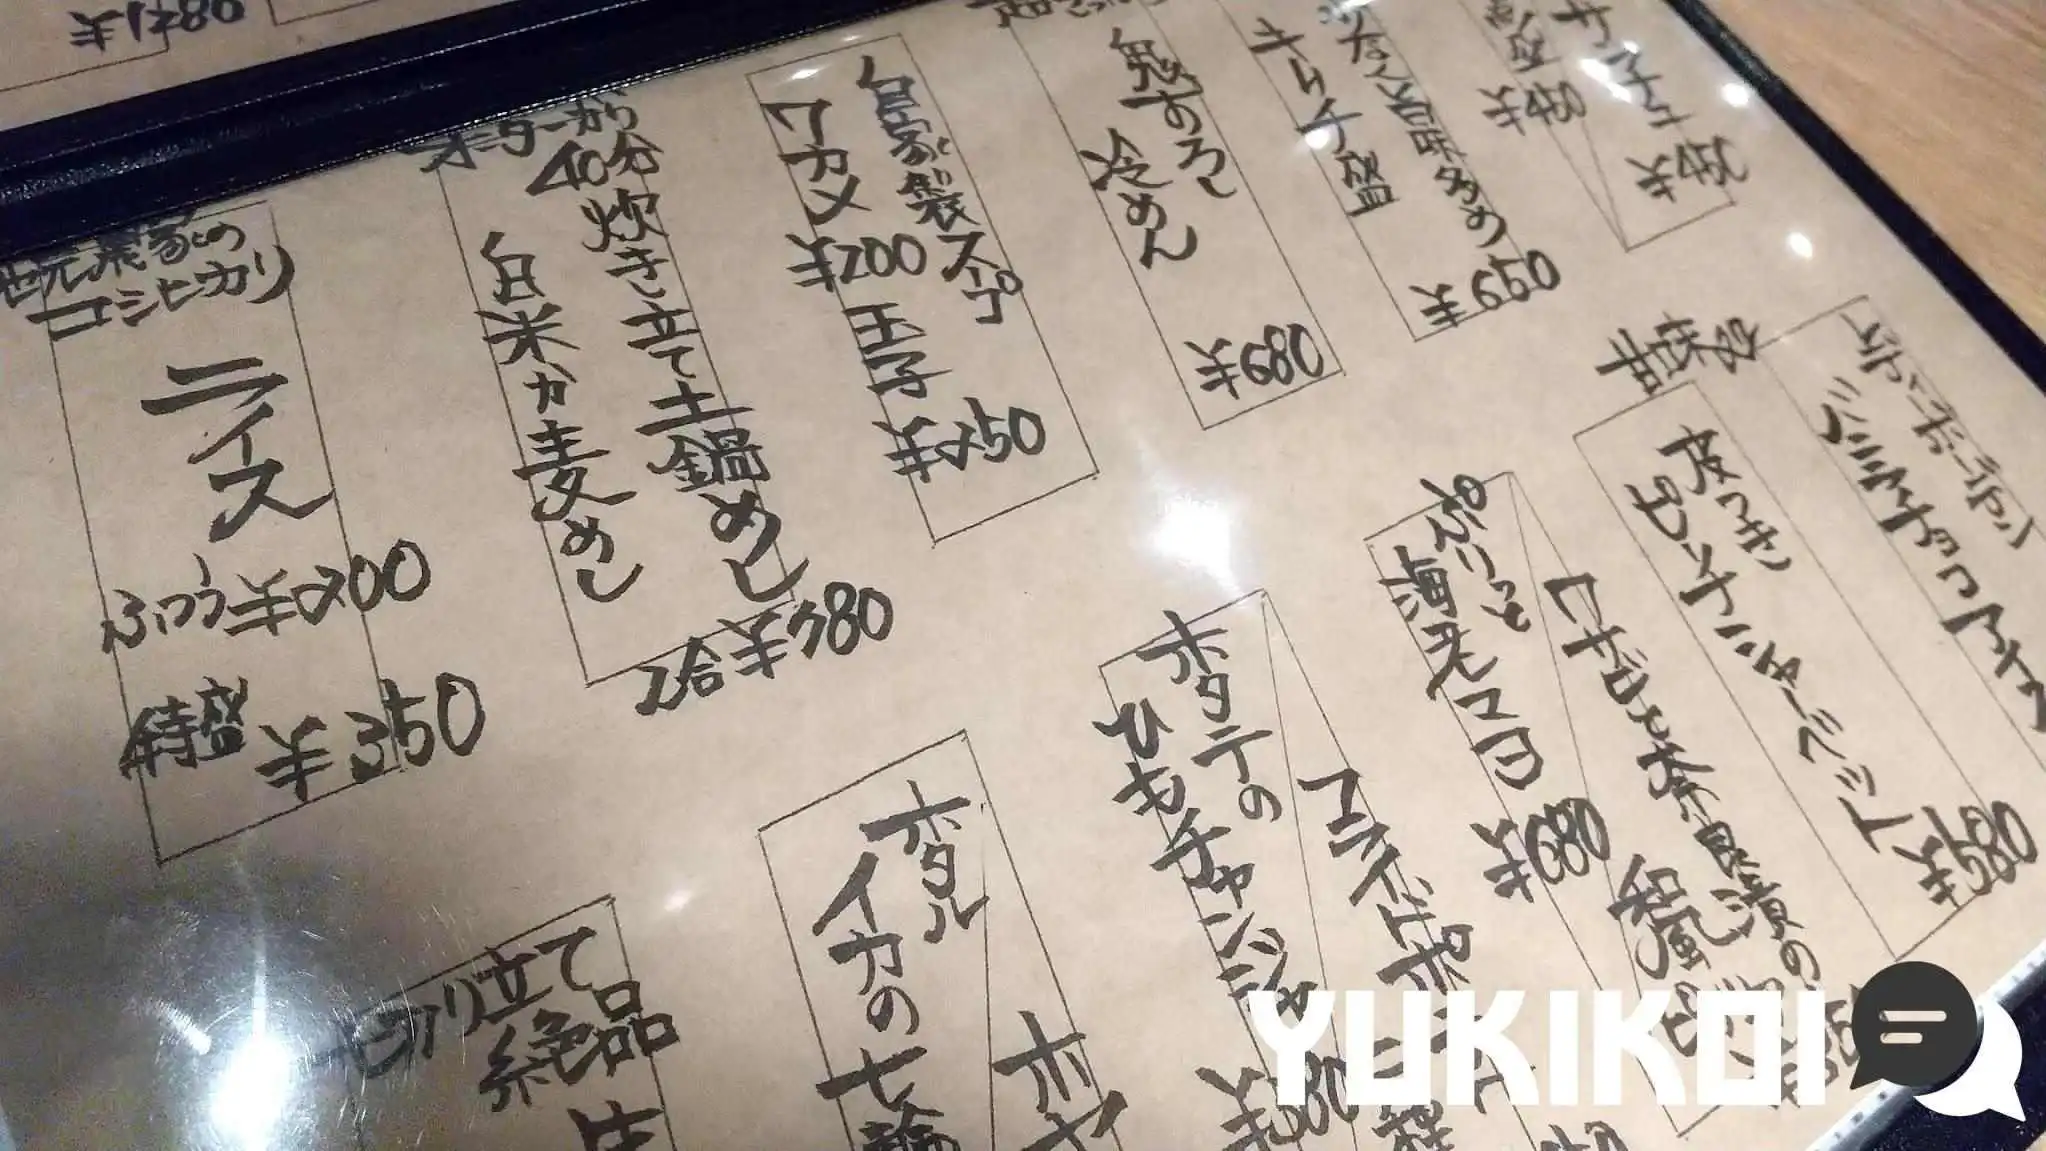 ¥1480
サンチュ
¥450
¥480
クセなく旨味多め
キムチ盛
¥650
鬼おろし
冷めん
¥680
自家製スープ
ワカメ
¥200
玉子
¥250
オーダーから
40分炊き立て土鍋めし
白米か麦めし
2合¥780
地元農家の
コシヒカリ
ライス
ふつう¥200
特盛
¥350
甘味処
バニラチョコアイス
皮つき
ピーナツシャーベット
¥580
ぷりっと
海老マヨ
¥680
ワサビと奈良漬の
和風
ホタテの
ひもチャンジャ
¥580
フライドポテト
ホタル
イカの
七輪
ホヤ
切り立て
絶品
生
YUKIKOI